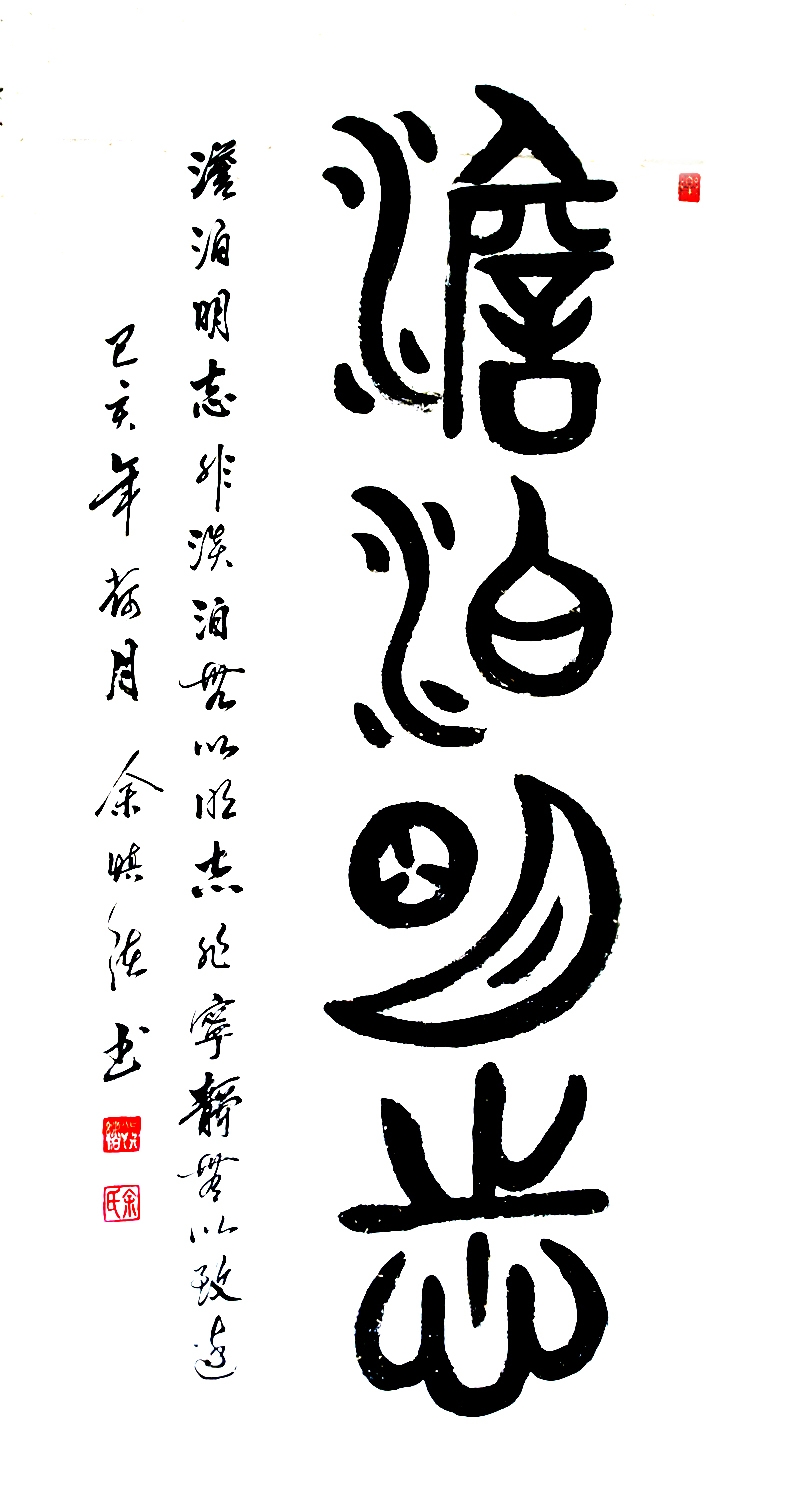 澹泊明志
澹泊明志非淡泊無以明志非寧靜無以致遠
己亥年荷月 余慎德书
余氏